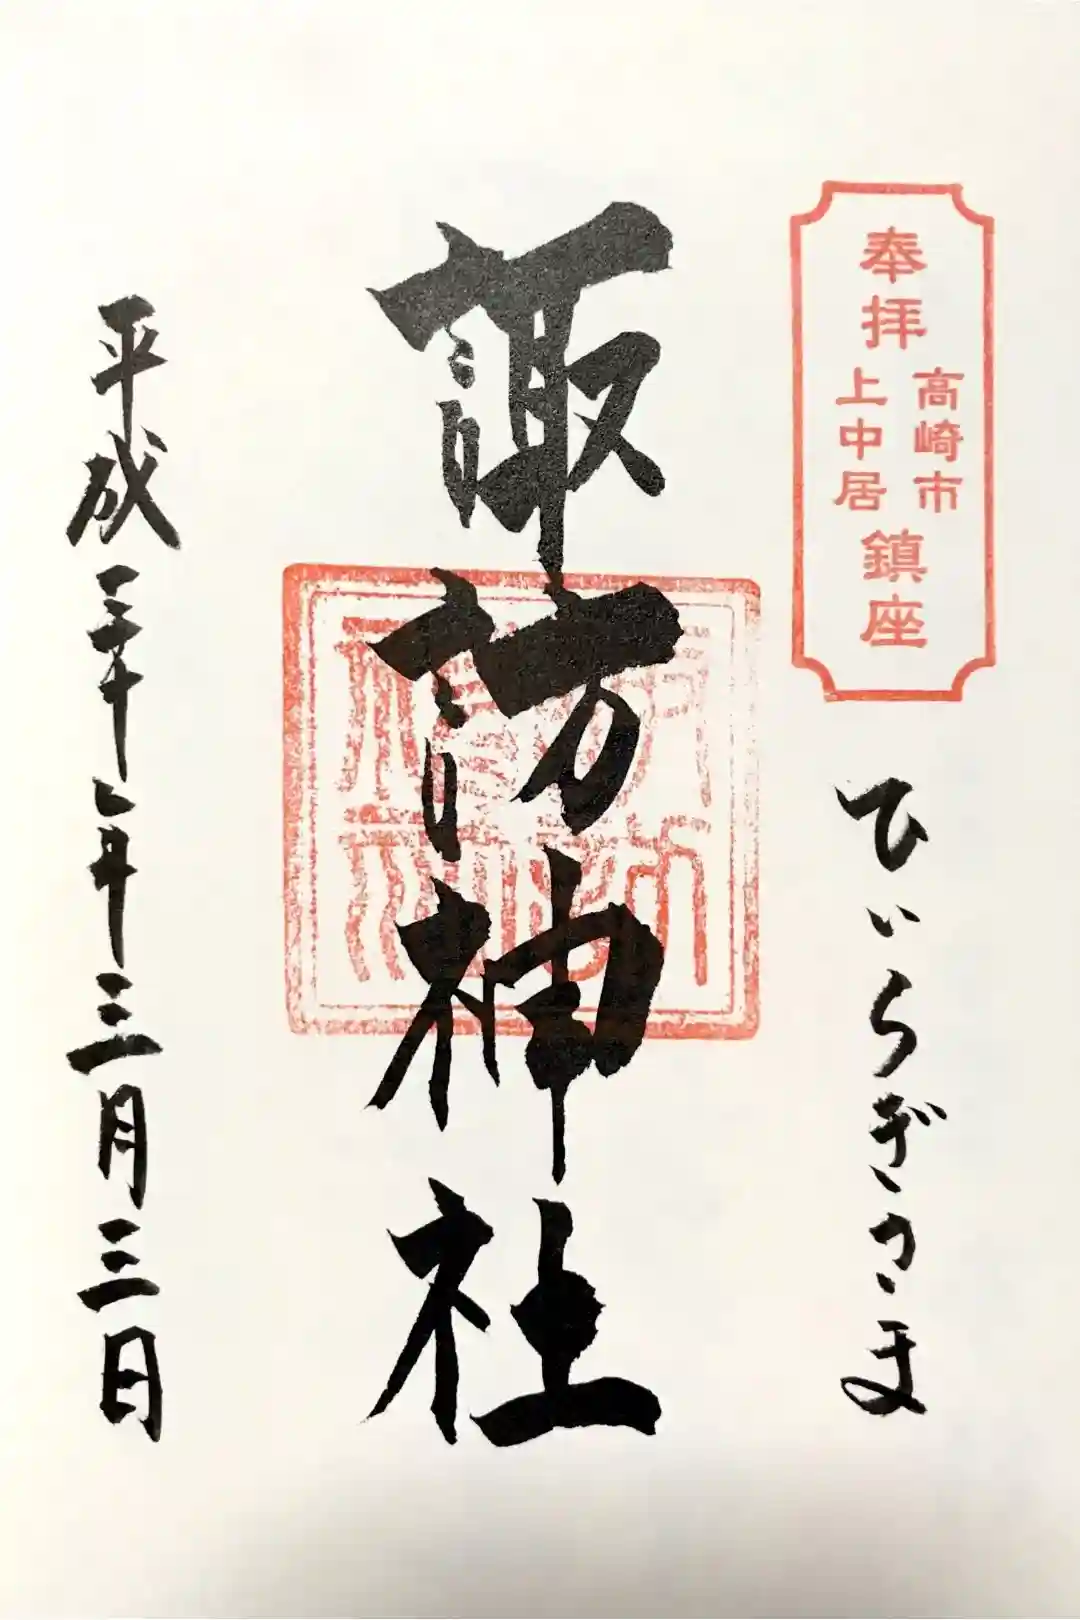 奉拝
高崎市
上中居
鎮座
ひいらぎさま
諏訪神社
平成三十年三月三日